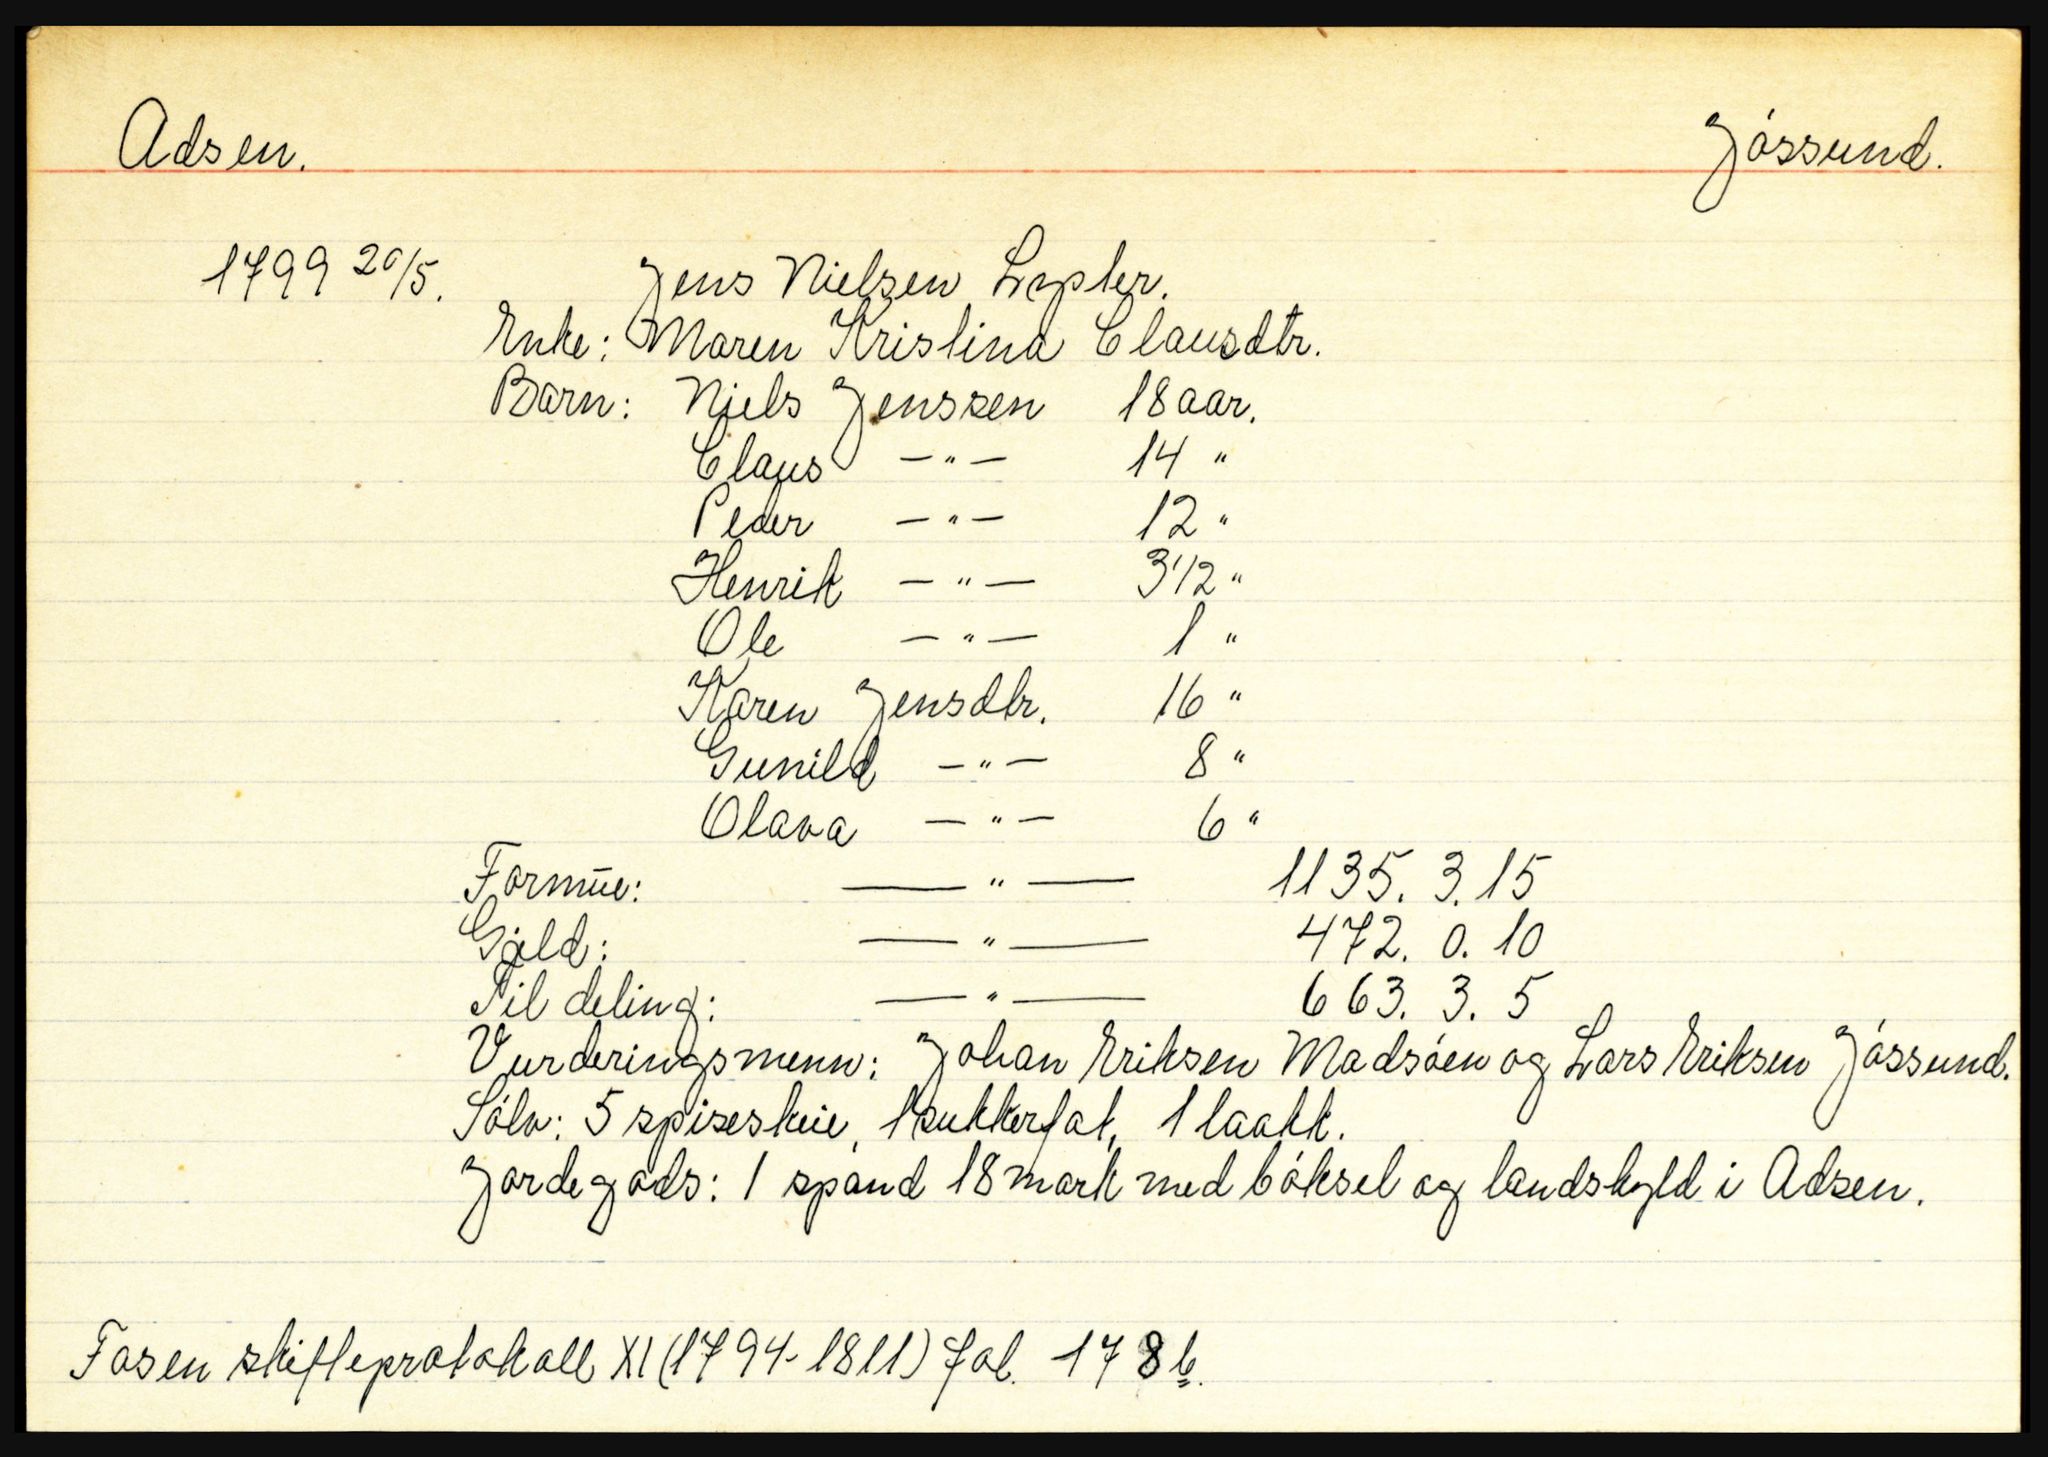 Adsen. Jössund.
1799 20/5. Jens Nielsen Lepler.
Enke: Maren Kristina Clausdtr.
Barn: Niels Jenssen 18 aar.
Claus —"— 14 "
Peder —"— 12 "
Henrik —"— 3 1/2 "
Ole —"— 1 "
Karen Jensdtr. 16 "
Gunild —"— 8 "
Olava —"— 6 "
Formue: —"— 1135. 3. 15
Gjæld: —"— 472. 0. 10
Til deling: —"— 663. 3. 5
Vurderingsmenn: Johan Eriksen Madsøen og Lars Eriksen Jóssund.
Sólv: 5 spiseskeie, 1 sukkerfat,
Jordegods: 1 spand 18 mark med bóksel og landskyld i Adsen.
Fosen skifteprotokoll XI (1794-1811) fol. 178b.